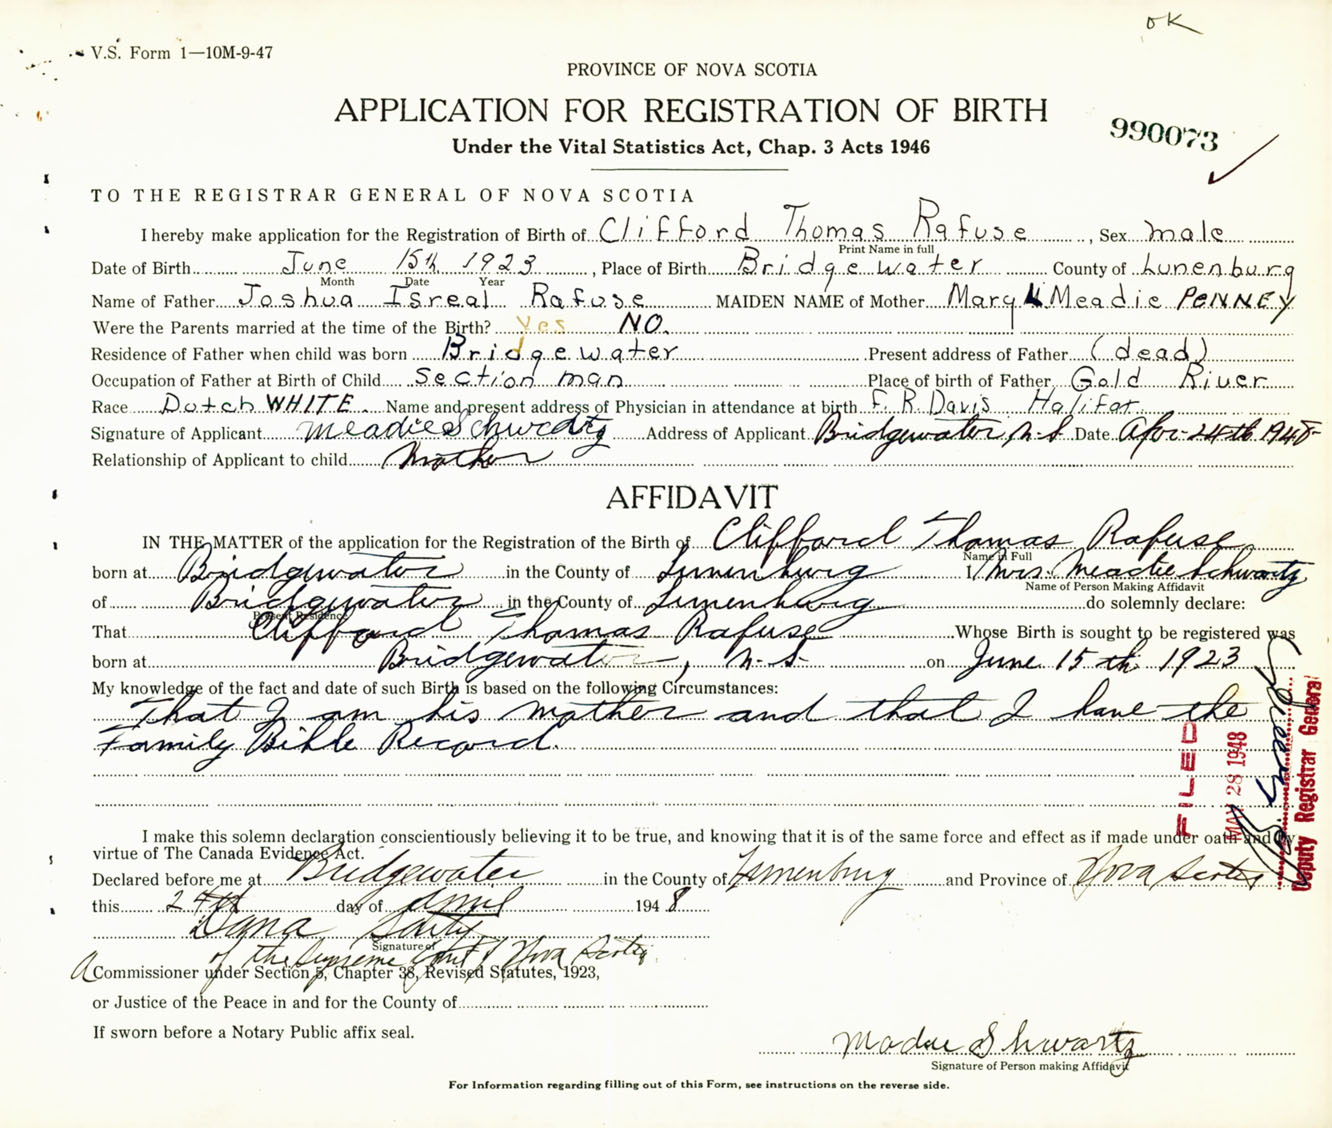 OK
V.S. Form 1—10M-9-47
PROVINCE OF NOVA SCOTIA
APPLICATION FOR REGISTRATION OF BIRTH
990073
Under the Vital Statistics Act, Chap. 3 Acts 1946
TO THE REGISTRAR GENERAL OF NOVA SCOTIA
I hereby make application for the Registration of Birth of Clifford Thomas Rafuse, Sex male
Print Name in full
Date of Birth June 15th 1923, Place of Birth Bridgewater County of Lunenburg
Month Date Year
Name of Father Joshua Isreal Rafuse MAIDEN NAME of Mother Mary Meadie PENNEY
Were the Parents married at the time of the Birth? Yes NO.
Residence of Father when child was born Bridgewater Present address of Father (dead)
Occupation of Father at Birth of Child section man Place of birth of Father Gold River
Race Dutch WHITE Name and present address of Physician in attendance at birth F. R. Davis Halifax
Signature of Applicant Meadie Schwartz Address of Applicant Bridgewater, N.S. Date Apr. 24th 1948
Relationship of Applicant to child Mother
AFFIDAVIT
IN THE MATTER of the application for the Registration of the Birth of Clifford Thomas Rafuse
Name in Full
born at Bridgewater in the County of Lunenburg I, Mrs. Meadie Schwartz
Name of Person Making Affidavit
of Bridgewater in the County of Lunenburg do solemnly declare:
Present Residence
That Clifford Thomas Rafuse Whose Birth is sought to be registered was
born at Bridgewater, N.S. on June 15th 1923
My knowledge of the fact and date of such Birth is based on the following Circumstances:
That I am his mother and that I have the
Family Bible Record.
FILED
MAY 28 1948
Deputy Registrar General
I make this solemn declaration conscientiously believing it to be true, and knowing that it is of the same force and effect as if made under oath and by
virtue of The Canada Evidence Act.
Declared before me at Bridgewater in the County of Lunenburg and Province of Nova Scotia
this 24th day of April 1948
Dana
Signature of
A of the Supreme Court of Nova Scotia
Commissioner under Section 5, Chapter 38, Revised Statutes, 1923,
or Justice of the Peace in and for the County of
If sworn before a Notary Public affix seal.
Madie Shwartz
Signature of Person making Affidavit
For Information regarding filling out of this Form, see instructions on the reverse side.